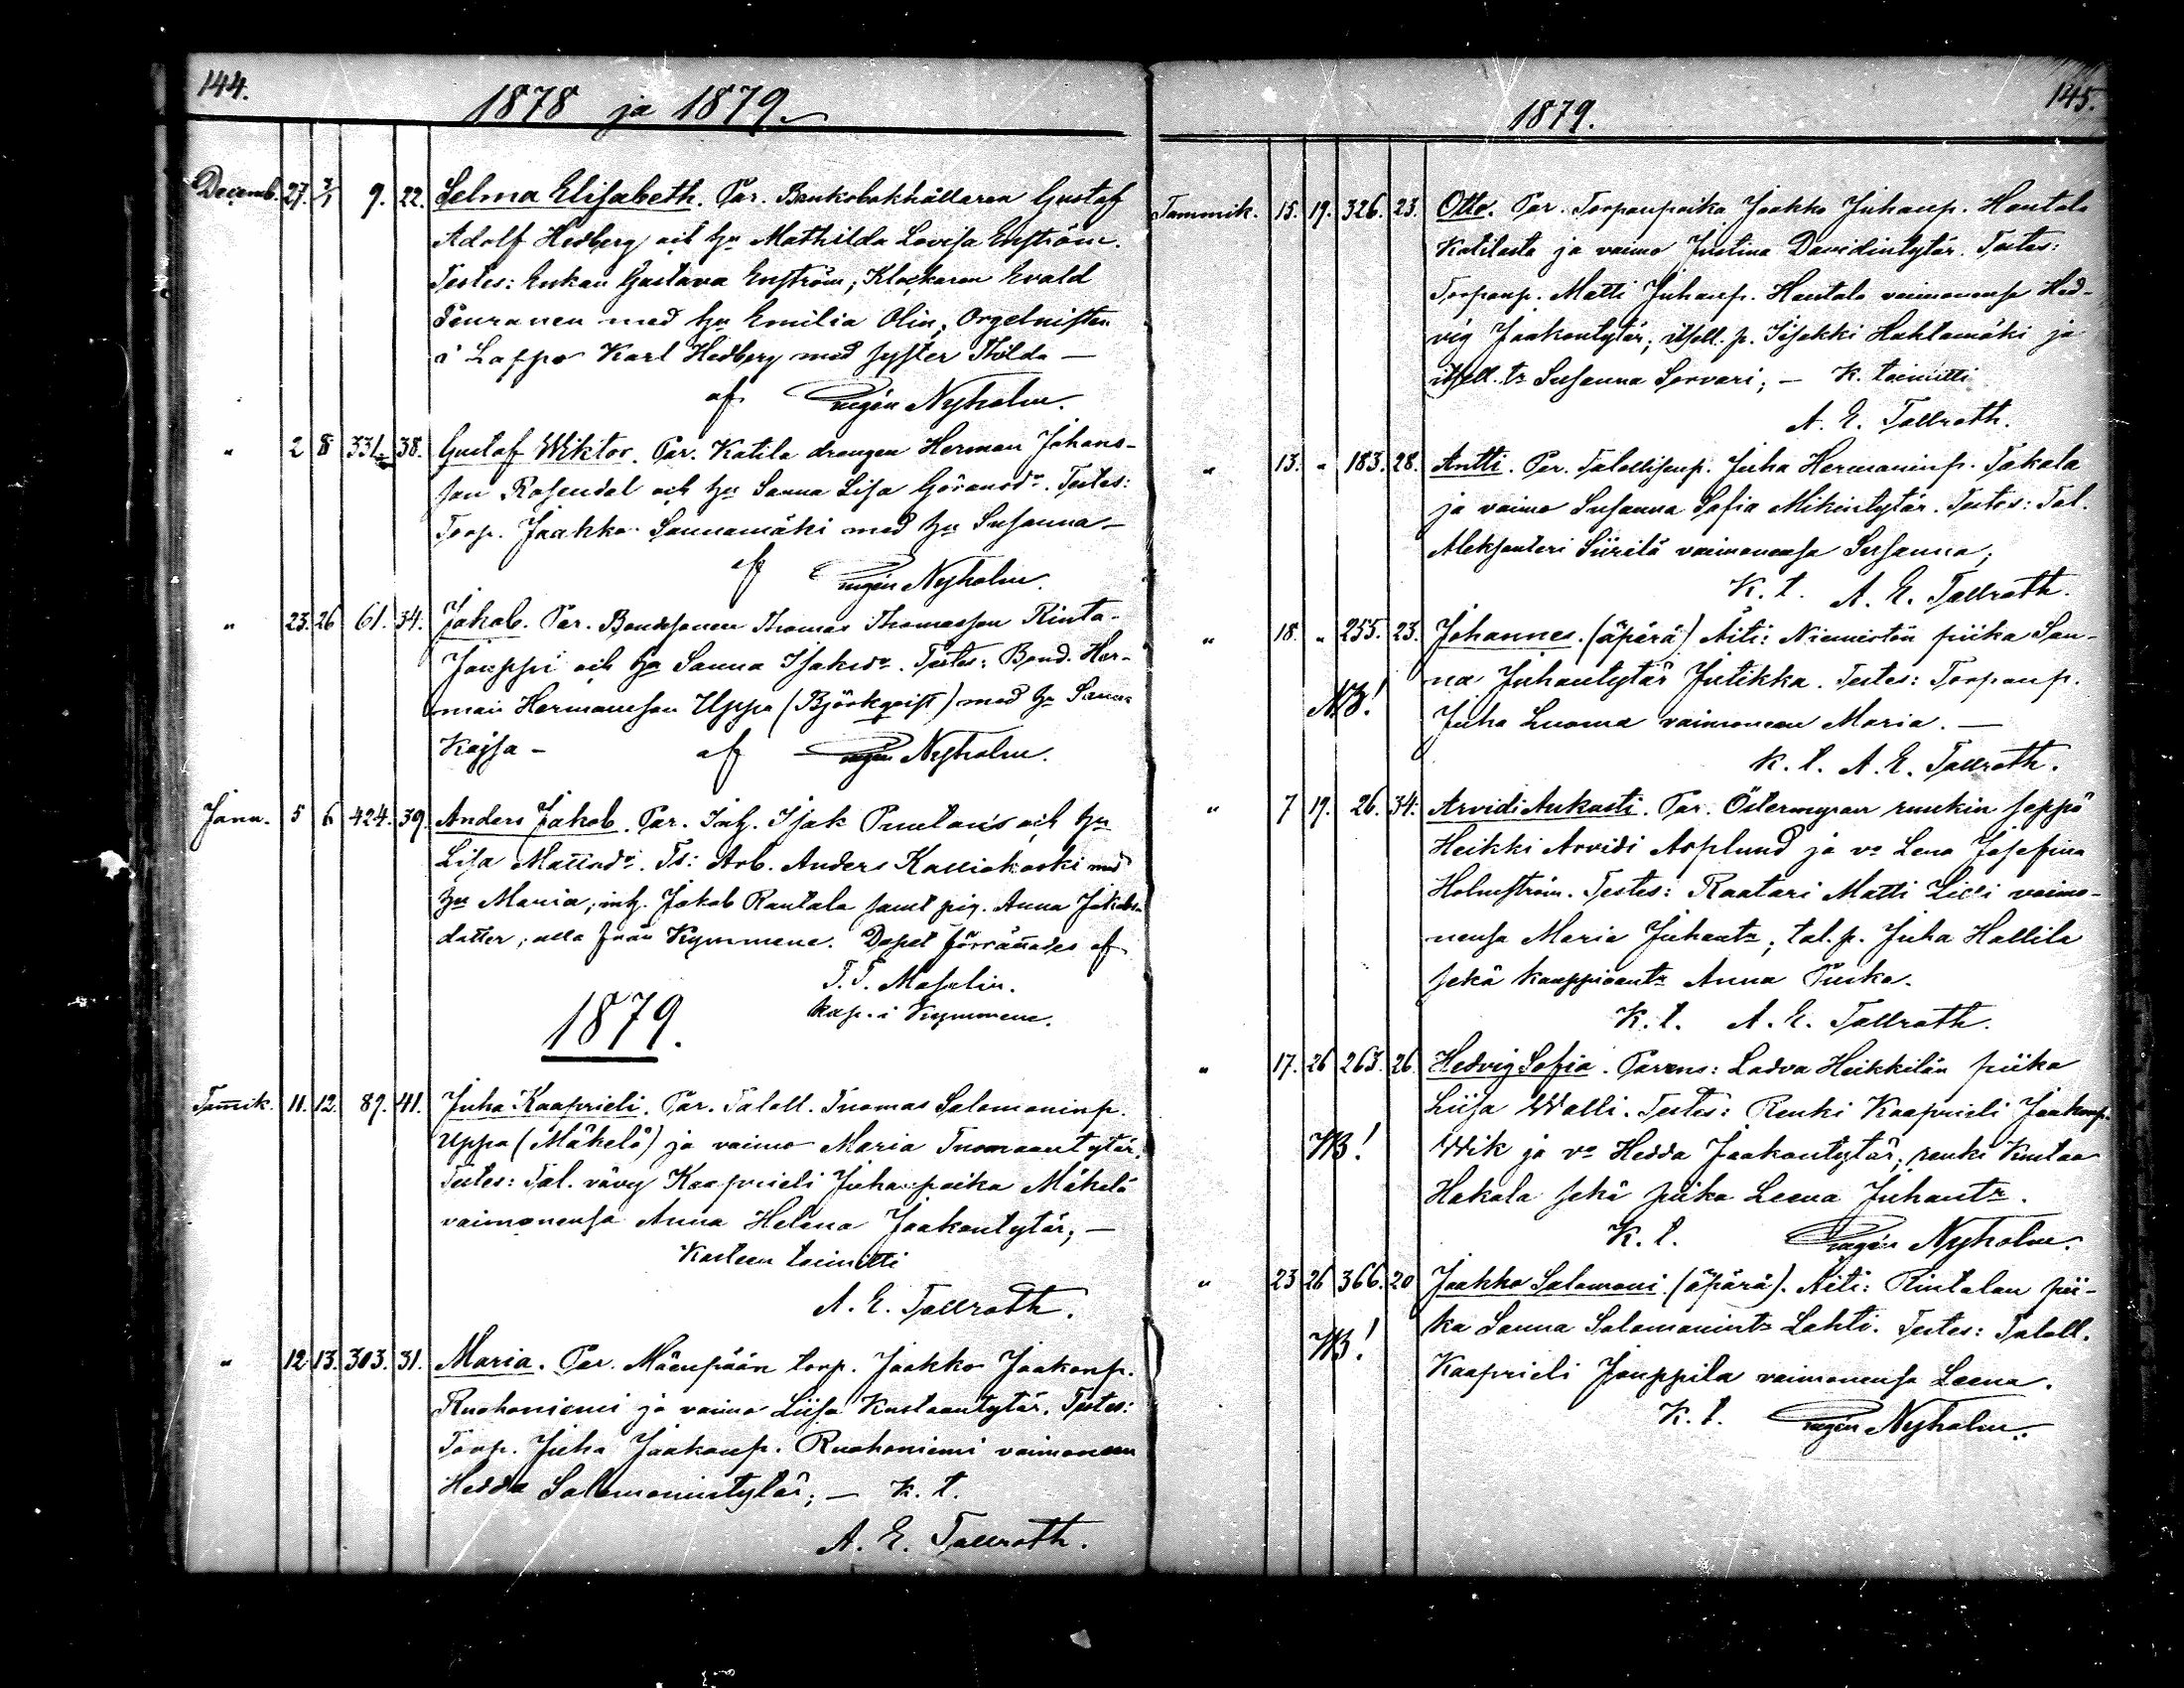 144.
1878 ja 1879.
Decemb. 27. 3/1 9. 22. Selma Elisabeth. Par. Bankobokhållaren Gustaf
Adolf Hedberg och hu Mathilda Lovisa Enström.
Testes: Enkan Gustava Enström, Klockaren Evald
Penranen med hu Emilia Olin, Orgelnisten
i Lappo Karl Hedberg med syster Hilda —
af Nyholm.
" 2 8 331. 38. Gustaf Wiktor. Par. Katila drängen Herman Johans-
son Rosendal och hu Sanna Lisa Göransdr. Testes:
Torp. Jaakko Sannamäki med hu Susanna —
af Nyholm.
" 23. 26 61. 34. Jakob. Par. Bondsonen Thomas Thomasson Rinta-
Jouppi och hu Sanna Isaksdr. Testes: Bond. Her-
man Hermansson Uppa (Björkqvist) med hu Sanna
Kajsa — af Nyholm.
Janu. 5 6 424. 39. Anders Jakob. Par. Inh. Isak Puntans och hu
Lisa Mattsdr. Ts: Arb. Anders Kalliokoski med
hu Maria; inh. Jakob Rantala samt pig. Anna Jakobs-
dotter, alla från Kymmene. Dopet förrättades af
T. T. Maselin.
kap. i Kymmene.
1879.
Tamik. 11. 12. 89. 41. Juha Kaaprieli. Par. Taloll. Tuomas Salomoninp.
Uppa (Mäkelä) ja vaimo Maria Tuomaantytär.
Testes: Tal. vävy Kaaprieli Juhanpoika Mäkelä
vaimonensa Anna Helena Jaakontytär; —
Kasteen toimitti
A. E. Tallroth.
" 12. 13. 303. 31. Maria. Par. Mäenpään torp. Jaakko Jaakonp.
Ruohoniemi ja vaimo Liisa Kustaantytär. Testes:
Torp. Juha Jaakonp. Ruohoniemi vaimoneen
Hedda Salomonintytär; — K. t.
A. E. Tallroth.
145.
1879.
Tammik. 15. 19. 326. 23. Otto. Par. Torpanpoika Jaakko Juhanp. Hautala
Katilasta ja vaimo Justina Davidintytär. Testes:
Torpanp. Matti Juhanp. Hautala vaimonensa Hed-
vig Jaakontytär; itsell. p. Iisakki Hahtamäki ja
itsell. tr Susanna Sorvari; — K. toimitti
A. E. Tallroth.
" 13. " 183. 28. Antti. Par. Talollisenp. Juha Hermaninp. Takala
ja vaimo Susanna Sofia Mikintytär. Testes: Tal.
Aleksanteri Siirilä vaimonensa Susanna;
K. t. A. E. Tallroth.
" 18. " 255. 23. Johannes. (äpärä) Äiti: Niemistön piika San-
na Juhantytär Jutikka. Testes: Torpanp.
NB! Juha Luoma vaimoneen Maria. —
K. t. A. E. Tallroth.
" 7 19. 26. 34. Arvidi Aukusti. Par. Östermyran ruukin seppä
Heikki Arvidi Asplund ja vo Lena Josefina
Holmström. Testes: Raatari Matti Lilli vaimo-
nensa Maria Juhantr; tal. p. Juha Hallila
sekä kauppiaantr Anna Puska.
K. t. A. E. Tallroth.
" 17. 26 263. 26. Hedvig Sofia. Parens: Ladva Heikkilän piika
Liisa Walli. Testes: Renki Kaaprieli Jaakonp.
NB! Wik ja vo Hedda Jaakontytär; renki Kustaa
Hakala sekä piika Leena Juhantr.
K. t. Nyholm.
" 23 26 366. 20 Jaakko Salomoni. (äpärä). Äiti: Rintalan pii-
NB! ka Sanna Salomonintr Lahti. Testes: Taloll.
Kaaprieli Jouppila vaimonensa Leena.
K. t. Nyholm.